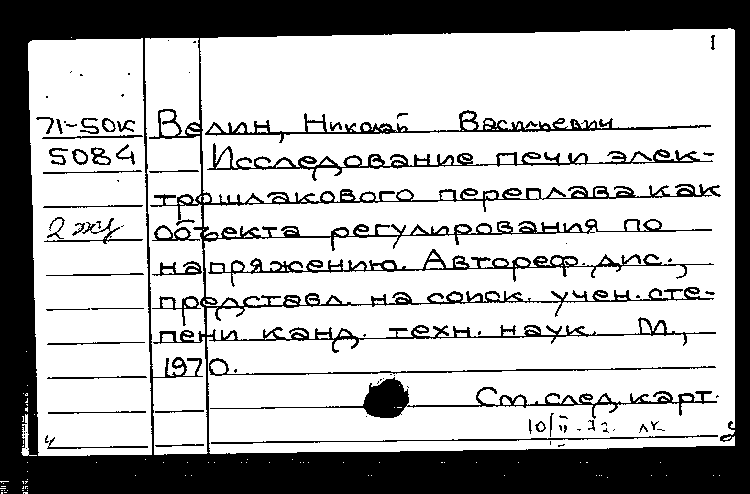 1
71-50К Велин, Николай Васильевич
5084 Исследование печи элек-
трошлакового переплава как
2 экз объекта регулирования по
напряжению. Автореф. дис.,
представл. на соиск. учен. сте-
пени канд. техн. наук. М.,
1970.
См. след. карт.
10/II-72. ЛК